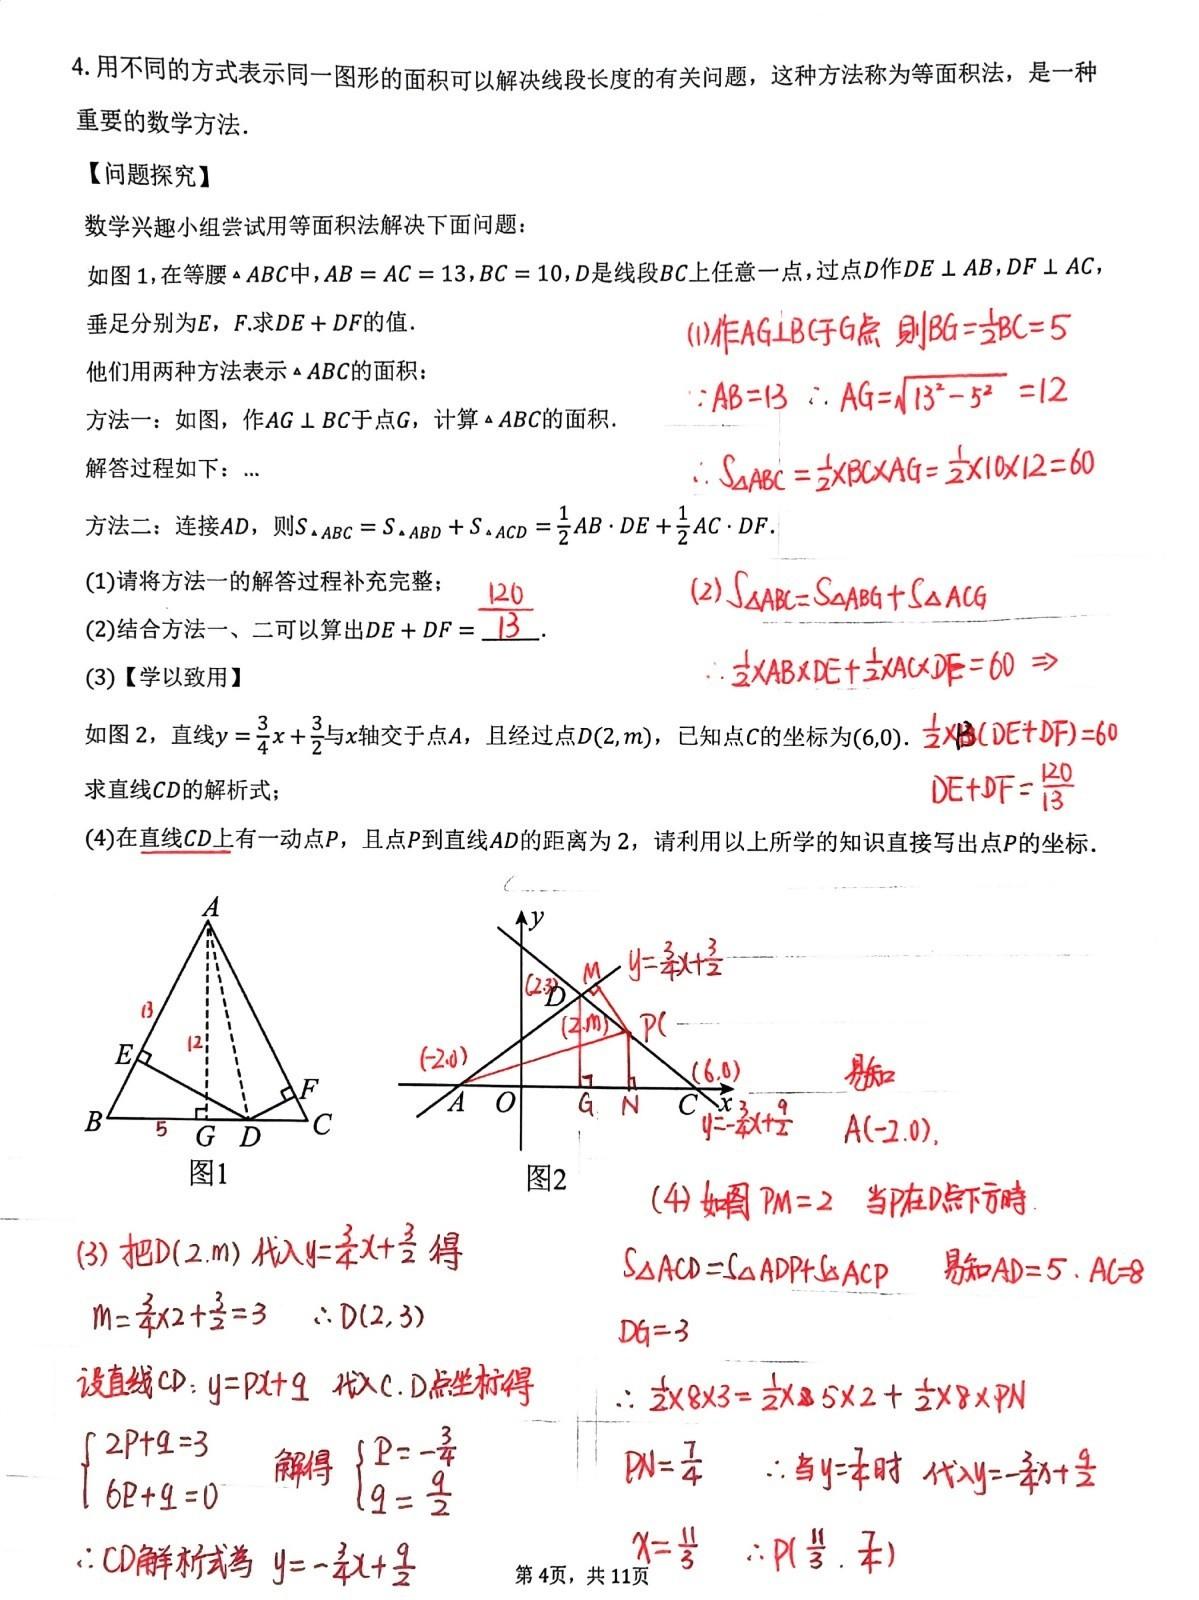 4. 用不同的方式表示同一图形的面积可以解决线段长度的有关问题，这种方法称为等面积法，是一种
重要的数学方法.
【问题探究】
数学兴趣小组尝试用等面积法解决下面问题：
如图 1，在等腰▵ABC中，AB = AC = 13，BC = 10，D是线段BC上任意一点，过点D作DE ⊥ AB，DF ⊥ AC，
垂足分别为E，F.求DE + DF的值.
他们用两种方法表示▵ABC的面积：
方法一：如图，作AG ⊥ BC于点G，计算▵ABC的面积.
解答过程如下：...
方法二：连接AD，则S▵ABC = S▵ABD + S▵ACD = 1/2 AB · DE + 1/2 AC · DF.
(1)请将方法一的解答过程补充完整；
(2)结合方法一、二可以算出DE + DF = 120/13.
(3)【学以致用】
如图 2，直线y = 3/4 x + 3/2与x轴交于点A，且经过点D(2,m)，已知点C的坐标为(6,0).
求直线CD的解析式；
(4)在直线CD上有一动点P，且点P到直线AD的距离为 2，请利用以上所学的知识直接写出点P的坐标.
(1)作AG⊥BC于G点 则BG=1/2BC=5
∵AB=13 ∴AG=√(13²-5²) =12
∴S△ABC=1/2×BC×AG=1/2×10×12=60
(2) S△ABC=S△ABG+S△ACG
∴1/2×AB×DE+1/2×AC×DF=60 ⇒
1/2×13(DE+DF)=60
DE+DF=120/13
A
13
12
E
F
B
5
G
D
C
图1
y
M
y=3/4x+3/2
(2.3)
D
(2.m)
P(
(-2.0)
(6.0)
A
O
G
N
C
x
y=-3/4x+9/2
图2
易知
A(-2.0).
(3) 把D(2.m) 代入y=3/4x+3/2 得
m=3/4×2+3/2=3 ∴D(2,3)
设直线CD: y=px+q 代入C.D点坐标得
{2p+q=3
6p+q=0 解得 {p=-3/4
q=9/2
∴CD解析式为 y=-3/4x+9/2
(4) 如图 PM=2 当P在D点下方時.
S△ACD=S△ADP+S△ACP 易知AD=5. AC=8
DG=3
∴1/2×8×3=1/2×5×2+1/2×8×PN
PN=7/4 ∴当y=7/4时 代入y=-3/4x+9/2
x=11/3 ∴P(11/3.7/4)
第 4页，共 11页